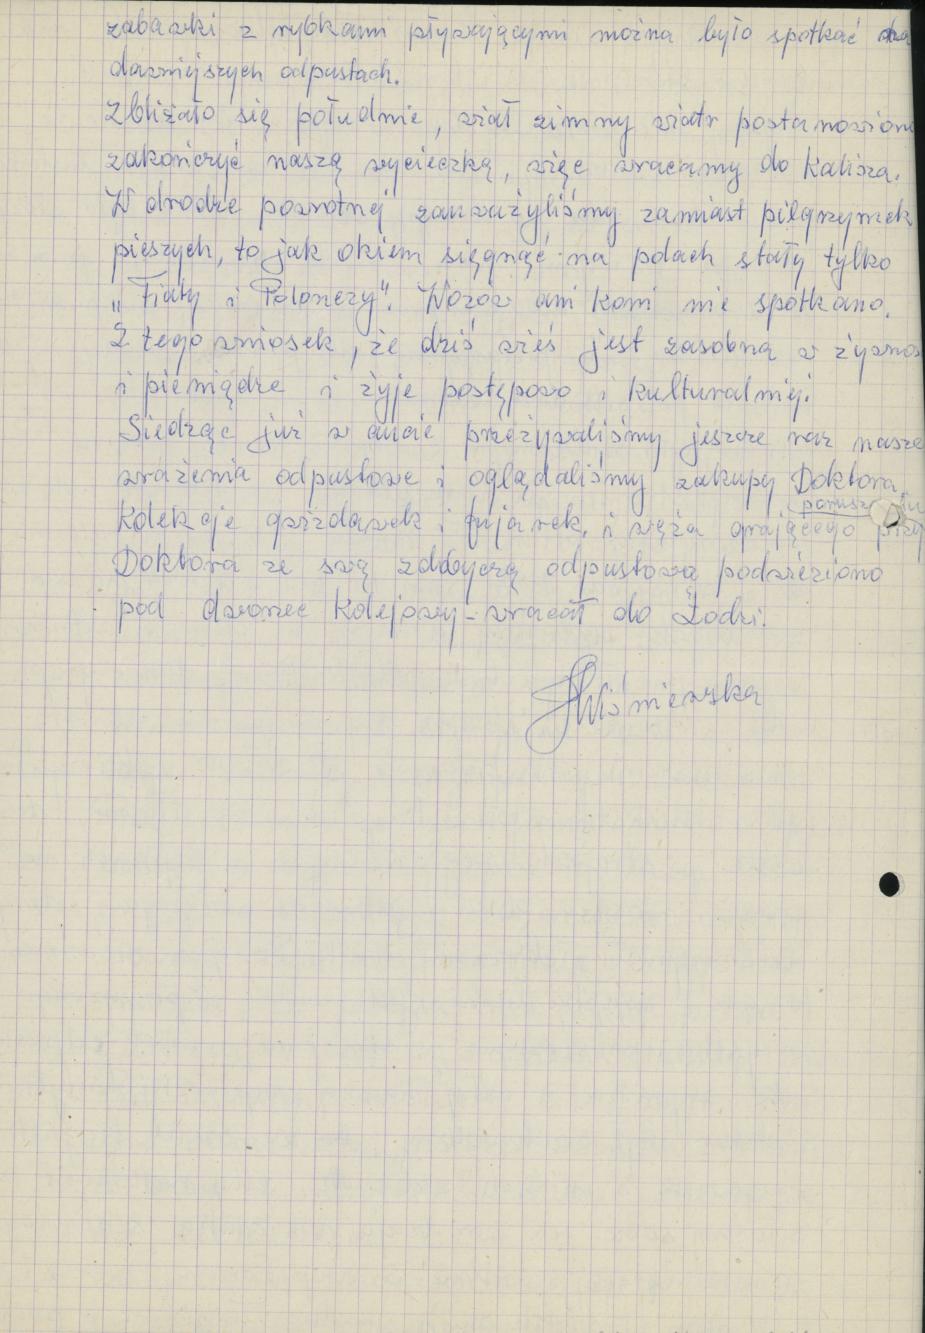 zabawki z rybkami pływającymi można było spotkać na
dawniejszych odpustach.
Zbliżało się południe, wiał zimny wiatr postanowiono
zakończyć naszą wycieczką, więc wracamy do Kalisza.
W drodze powrotnej zauważyliśmy zamiast pielgrzymek
pieszych, to jak okiem sięgnąć na polach stały tylko
„Fiaty i Polonezy". Wozów ani koni nie spotkano.
Z tego wniosek, że dziś wieś jest zasobna w żywnoś
i pieniądze i żyje postępowo i kulturalniej.
Siedząc już w aucie przeżywaliśmy jeszcze raz nasze
wrażenia odpustowe i oglądaliśmy zakupy Doktora,
Kolekcje gwizdawek i fujarek, i węża grającego przy
Doktora ze swą zdobyczą odpustową podwieziono
pod dworzec Kolejowy - wracał do Łodzi.
Wiśniewska